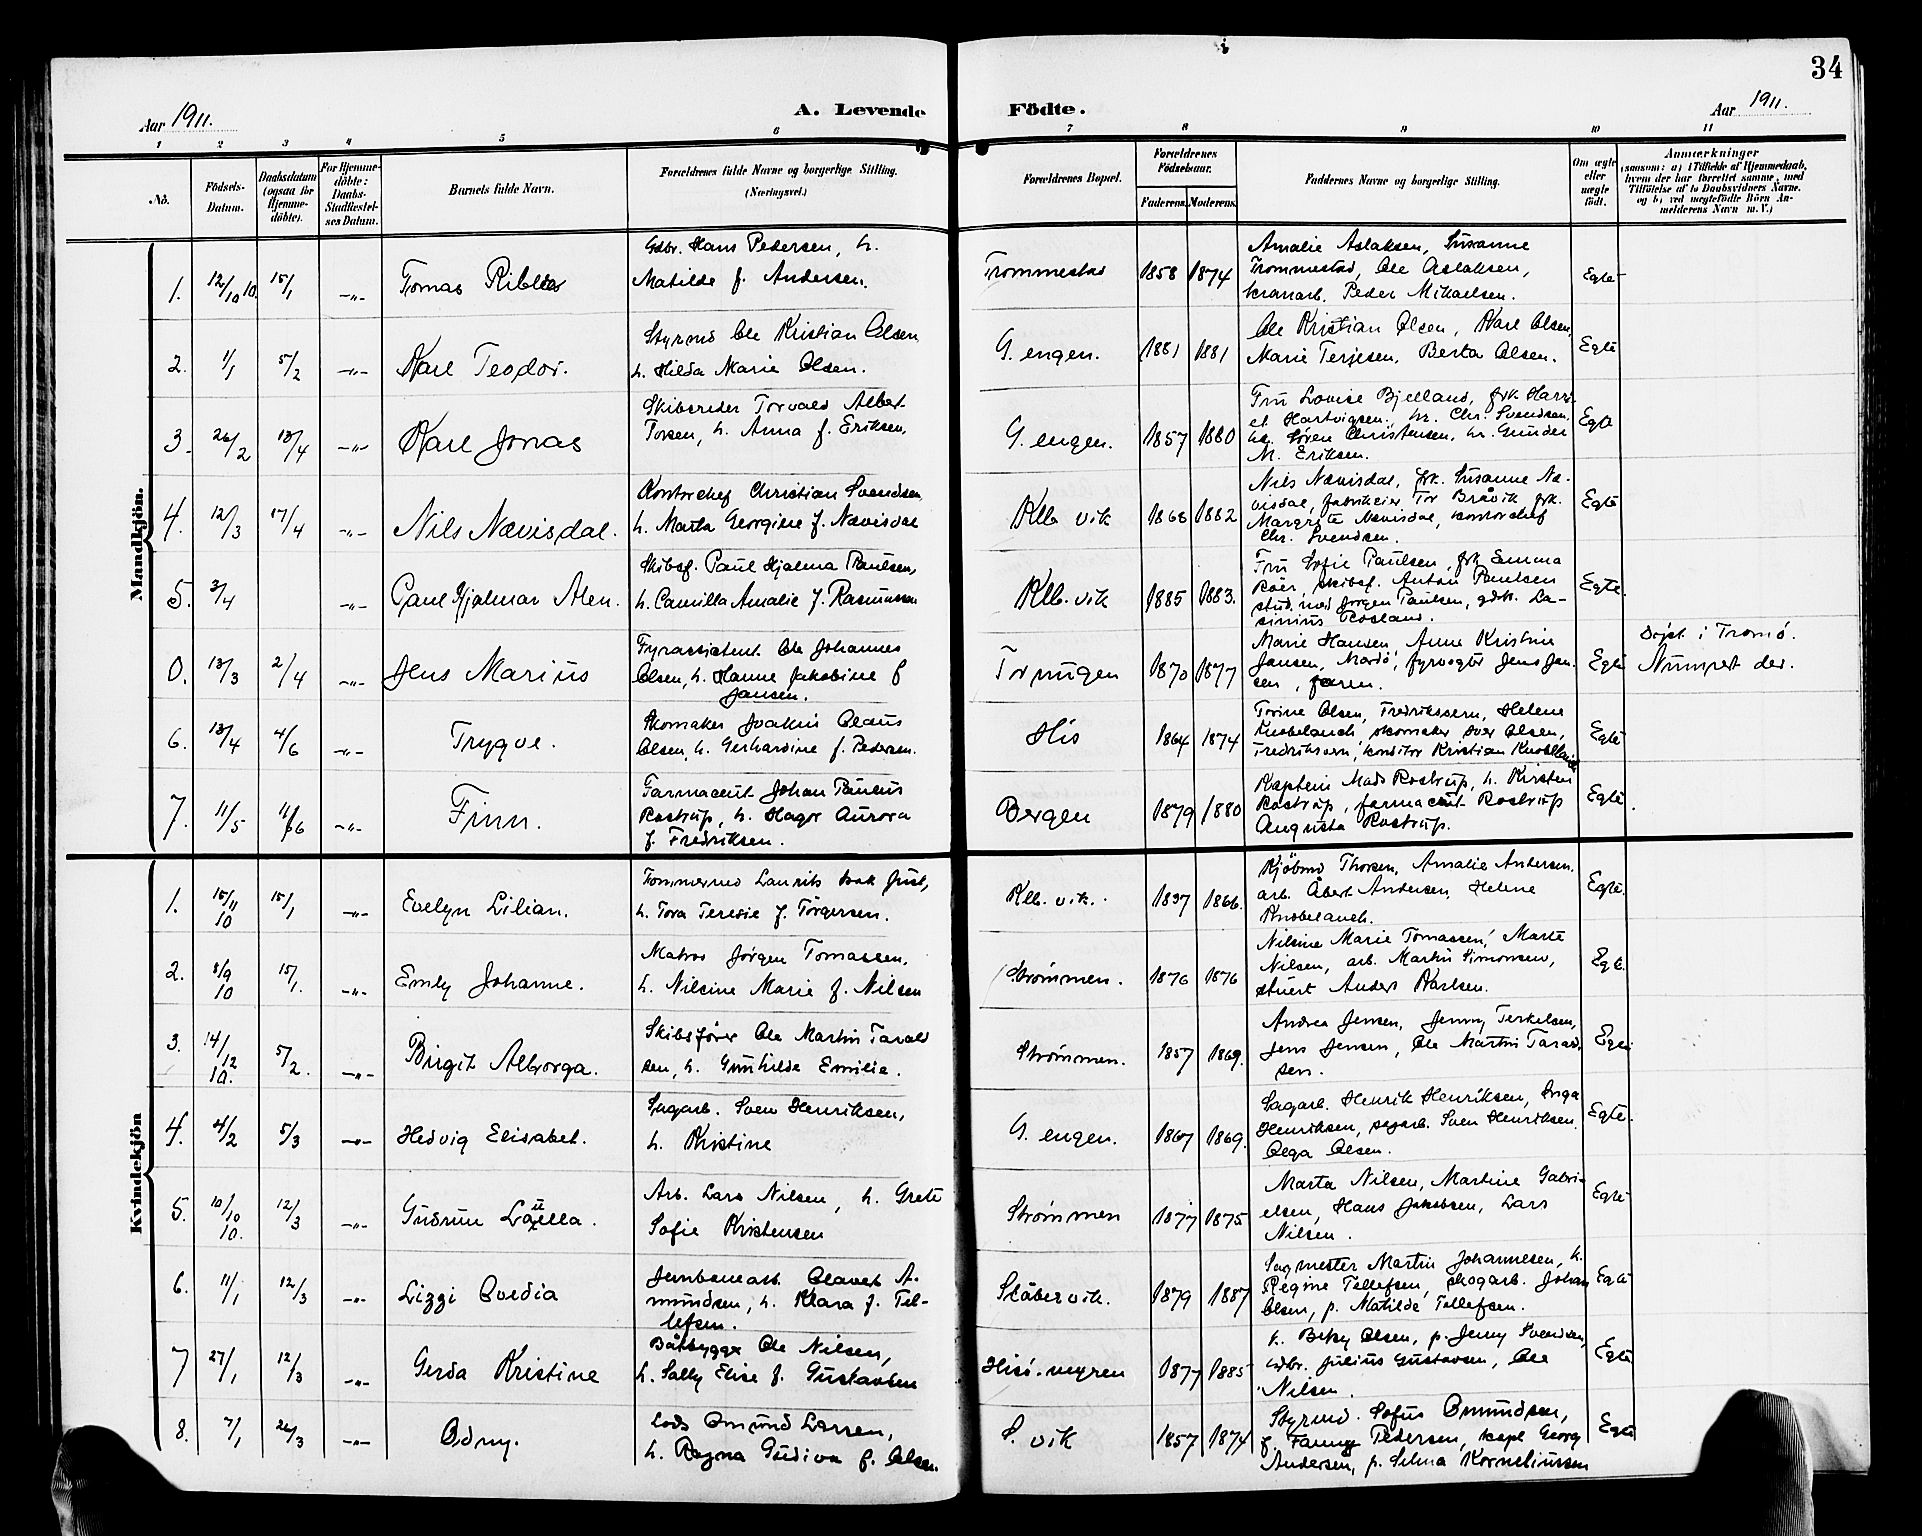 34
Aar 1911.
A. Levende Födte.
Aar 1911.
1 2 3 4 5 6 7 8 9 10 11
No.
Födsels-Datum.
Daabsdatum (ogsaa för Hjemme-döbte).
For Hjemme-döbte: Daabs-Stadfæstel-ses Datum.
Barnets fulde Navn.
Forældrenes fulde Navne og borgerlige Stilling. (Næringsvei.)
Forældrenes Bopæl.
Forældrenes Födselsaar.
Faderens. Moderens.
Faddernes Navne og borgerlige Stilling.
Om ægte eller uægte födt.
Anmærkninger
(saasom: a) i Tilfælde af Hjemmedaab, hvem der har forrettet samme, med Tilföielse af to Daabsvidners Navne. og b) ved uægtefödte Börn Anmelderens Navn m. V.)
Mandkjön.
1. 12/10 10. 15/1 -"- Tomas Gdbr. Hans Pedersen, h.
Matilde f. Andersen. Trommestad 1858 1874 Amalie Aslaksen, Susanne
Trommestad, Ole Aslaksen,
kranarb. Peder Mikaelsen. Egte
2. 1/1 5/2 -"- Karl Teodor. Styrmd Ole Kristian Olsen
h. Hilda Marie Olsen. G. engen. 1881 1881 Ole Kristian Olsen, Karl Olsen,
Marie Terjesen, Berta Olsen. Egte
3. 26/2 13/4 -"- Karl Jonas Skibsreder Torvald Albert
Torsen, h. Anna f. Eriksen. G. engen. 1857 1880 Fru Lovise Bjelland, frk. Harri-
et Hartvigsen, hr. Chr. Svendsen,
hr. Søren Christensen, hr. Gunder
M. Eriksen. Egte
4. 12/3 17/4 -"- Nils Nævisdal. Kontorchef Christian Svendsen
h. Marta Georgine f. Nævisdal Klb. vik 1868 1882 Nils Nævisdal, frk. Susanne Næ-
visdal, fabrikeier Tor Bråvik, frk.
Margrete Nævisdal, kontorchef
Chr. Svendsen. Egte
5. 3/4 -"- Paul Hjalmar Skibsf. Paul Hjalma Paulsen,
h. Camilla Amalie f. Rasmussen Klb. vik 1885 1883. Fru Sofie Paulsen, frk Emma
skibsf. Anton Paulsen
stud. med Jørgen Paulsen, gdbr.
Egte.
0. 13/3 2/4 -"- Jens Marius Fyrassistent Ole Johannes
Olsen, h. Hanne Jakobine f
Jansen. Torungen 1870 1877 Marie Hansen, Anne Kristine
Jansen, Mardö, fyrvogter Jens Jan-
sen, faren. Egte Døpt i Tromö.
der.
6. 13/4 4/6 -"- Trygve. Skomaker Joakim Olaus
Olsen, h. Gerhardine f. Pedersen. His 1864 1874 Torine Olsen, Fredriksvern, Helene
Knobelauch, skomaker Olsen,
Fredriksvern, konditor Kristian Knobelauch Egte
7. 11/5 11/6 -"- Finn. Farmaceut Johan Paulus
Rostrup, h. Hagor Aurora
f. Fredriksen. Bergen 1879 1880 Kaptein Mads Rostrup, h. Kirsten
Rostrup, farmaceut Rostrup
Augusta Rostrup. Egte.
Kvindekjön
1. 15/11 10 15/1 -"- Evelyn Lilian. Tømmermd Laurits
h. Tora Teresie f. Törgersen. Klb. vik. 1866. Kjöbmd Thorsen, Amalie Andersen.
arb. Andersen, Helene
Knobelauch. Egte.
2. 8/9 10 15/1. -"- Emly Johanne. Matros Jörgen Tomassen,
h. Nilsine Marie f. Nilsen Strömmen. 1876 1876 Nilsine Marie Tomassen, Marte
Nilsen, arb. Martin Simonsen,
stuert Anders Karlsen. Egte.
3. 14/12 10. 5/2. -"- Birgit Alborga. Skibsförer Ole Martin Tarald
sen, h. Gunhilde Emilie. Strömmen. 1857 1869. Andrea Jensen, Jenny Terkelsen,
Jens Jensen, Ole Martin Tarald-
sen. Egte
4. 4/2 5/3 -"- Hedvig Elisabet. Sagarb. Sven Henriksen,
h. Kristine G. engen. 1867 1869. Sagarb. Henrik Henriksen, Inga
Henriksen, sagarb. Sven Henriksen.
Olga Olsen. Egte.
5. 10/10 10. 12/3 -"- Gudrun Arb. Lars Nilsen, h. Grete
Sofie Kristensen Strömmen 1877 1875 Marta Nilsen, Martine Gabri-
elsen, Hans Jakobsen, Lars
Nilsen. Egte
6. 11/1 12/3 -"- Lizzi Ovedia Jernbanearb. Olavet A-
mundsen, h. Klara f. Tel-
lefsen. Stöbervik. 1879 1887 Sagmester Martin Johannesen, h.
Regine Tellefsen, skogarb. Johan
Olsen, p. Matilde Tellefsen. Egte
7 27/1 12/3 -"- Gerda Kristine Båtbygger Ole Nilsen,
h. Sally Elise f. Gustavsen Hisö-myren 1877 1885 h. Betzy Olsen, p. Jenny Svendsen,
gdbr. Julius Gustavsen, Ole
Nilsen. Egte
8. 7/1 26/3 -"- Odny. Lods Omund Larsen,
h. Ragna Gudiva f. Olsen S. vik 1857 1874 Styrmd. Sofus Omundsen,
f. Fanny Pedersen, kapt Georg
Andersen, p. Selma Korneliussen Egte